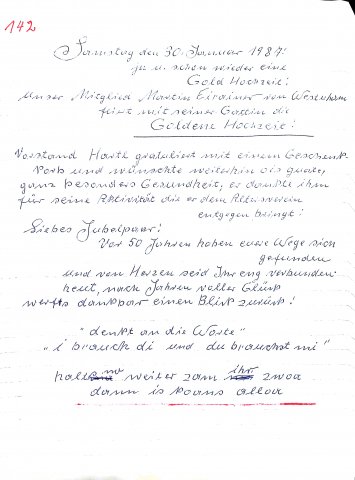 142
Samstag den 30. Januar 1987!
ja u. schon wieder eine
Gold Hochzeit!
Unser Mitglied Martin Eirainer von Westerham
fiert mit seiner Gattin die
Goldene Hochzeit!
Vorstand Hartl gratuliert mit einem Geschenk
Korb und wünschte weiterhin als gute,
ganz besonders Gesundheit, er dankte ihm
für seine Aktivität die er dem Altersverein
entgegen bringt!
Liebes Jubelpaar!
Vor 50 Jahren haben euere Wege sich
gefunden
und von Herzen seid Ihr eng verbunden
heut, nach Jahren voller Glück
werfts dankbar einen Blick zurück!
"denkt an die Worte"
"i brauch di und du brauchst mi"
halts no weiter zam ihr zwoa
dann is koans alloa